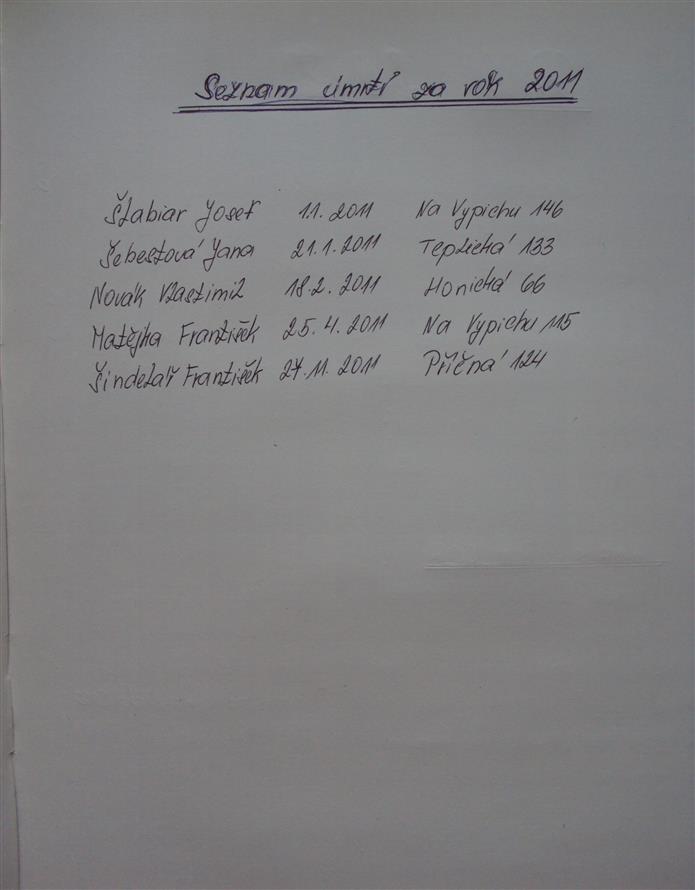 Seznam úmrtí za rok 2011
Štabiar Josef 1.1. 2011 Na Vypichu 146
Šebestová Jana 21.1.2011 Teplická 133
Novák Vlastimil 18.2. 2011 Honická 66
Matějka František 25.4.2011 Na Vypichu 115
Šindelář František 27.11.2011 Příčná 124